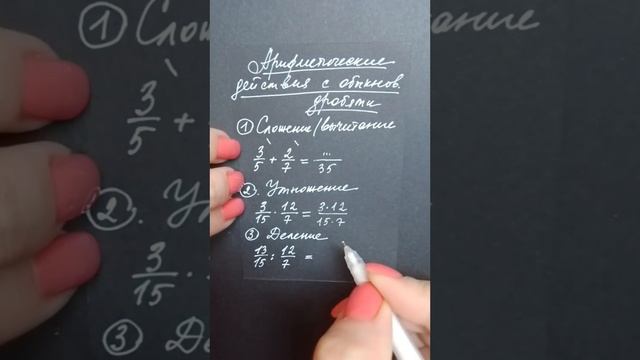 Арифметические
действия с обыкнов.
дробями
① Сложение/вычитание
3/5 + 2/7 = .../35
②. Умножение
3/15 · 12/7 = 3·12/15·7
③ Деление
13/15 : 12/7 =